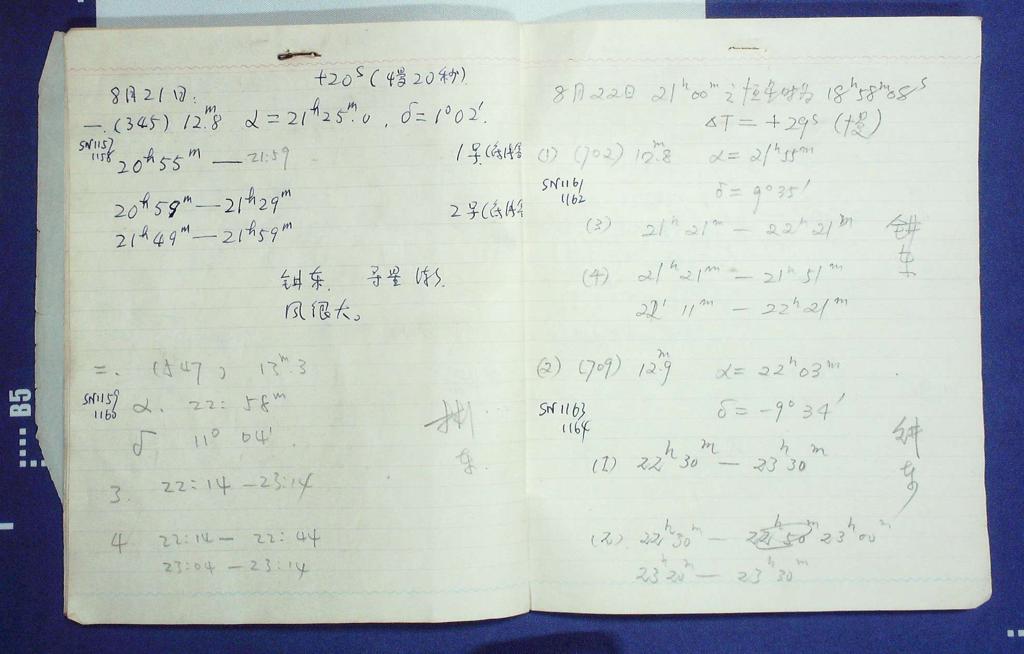 +20ˢ (慢20秒)
8月21日:
一. (345) 12ᵐ.8 α=21ʰ25ᵐ.0, δ=1°02′.
SN1157
1158
20ʰ55ᵐ — 21:59
1号(
20ʰ59ᵐ — 21ʰ29ᵐ
2号(
21ʰ49ᵐ — 21ʰ59ᵐ
钳东. 导星
风很大。
二. (547) 13ᵐ.3
SN1159
1160
α. 22: 58ᵐ
δ 11° 04′.
东
3. 22:14 — 23:14
4 22:14 — 22:44
23:04 — 23:14
8月22日 21ʰ00ᵐ之恒星时为 18ʰ58ᵐ08ˢ
ΔT = +29ˢ (慢)
(1) (702) 12ᵐ.8 α= 21ʰ55ᵐ
SN1161
1162
δ= 9°35′
(3) 21ʰ21ᵐ — 22ʰ21ᵐ
钳东
(4) 21ʰ21ᵐ — 21ʰ51ᵐ
22ʰ11ᵐ — 22ʰ21ᵐ
(2) (709) 12ᵐ.9 α= 22ʰ03ᵐ
SN1163
1164
δ= -9°34′
钳东
(1) 22ʰ30ᵐ — 23ʰ30ᵐ
(2) 22ʰ30ᵐ — 22ʰ50ᵐ 23ʰ00ᵐ
23ʰ20ᵐ — 23ʰ30ᵐ
B5